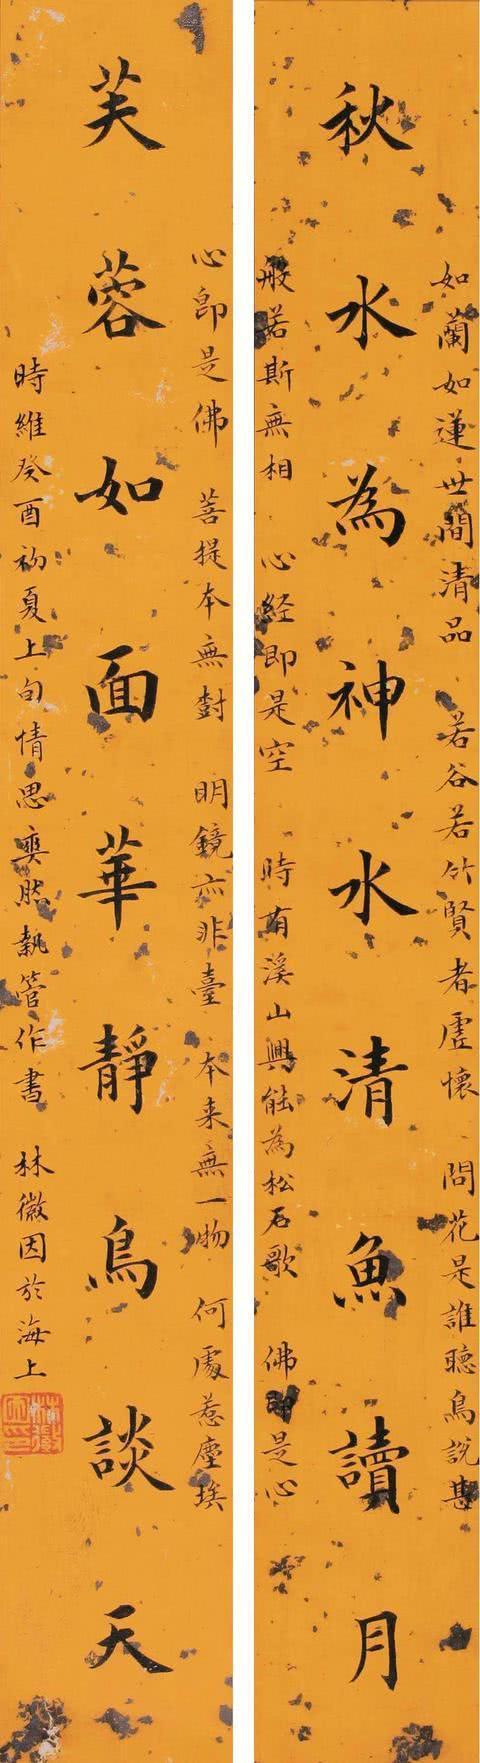 如蘭如蓮世間清品 若谷若竹賢者虛懷 問花是誰聽鳥說甚
秋水為神水清魚讀月
般若斯無相 心経即是空 時有溪山興能為松石歌 佛即是心
心即是佛 菩提本無樹 明鏡亦非臺 本来無一物 何處惹塵埃
芙蓉如面華靜鳥談天
時維癸酉初夏上旬情思爽然執管作書 林徽因於海上